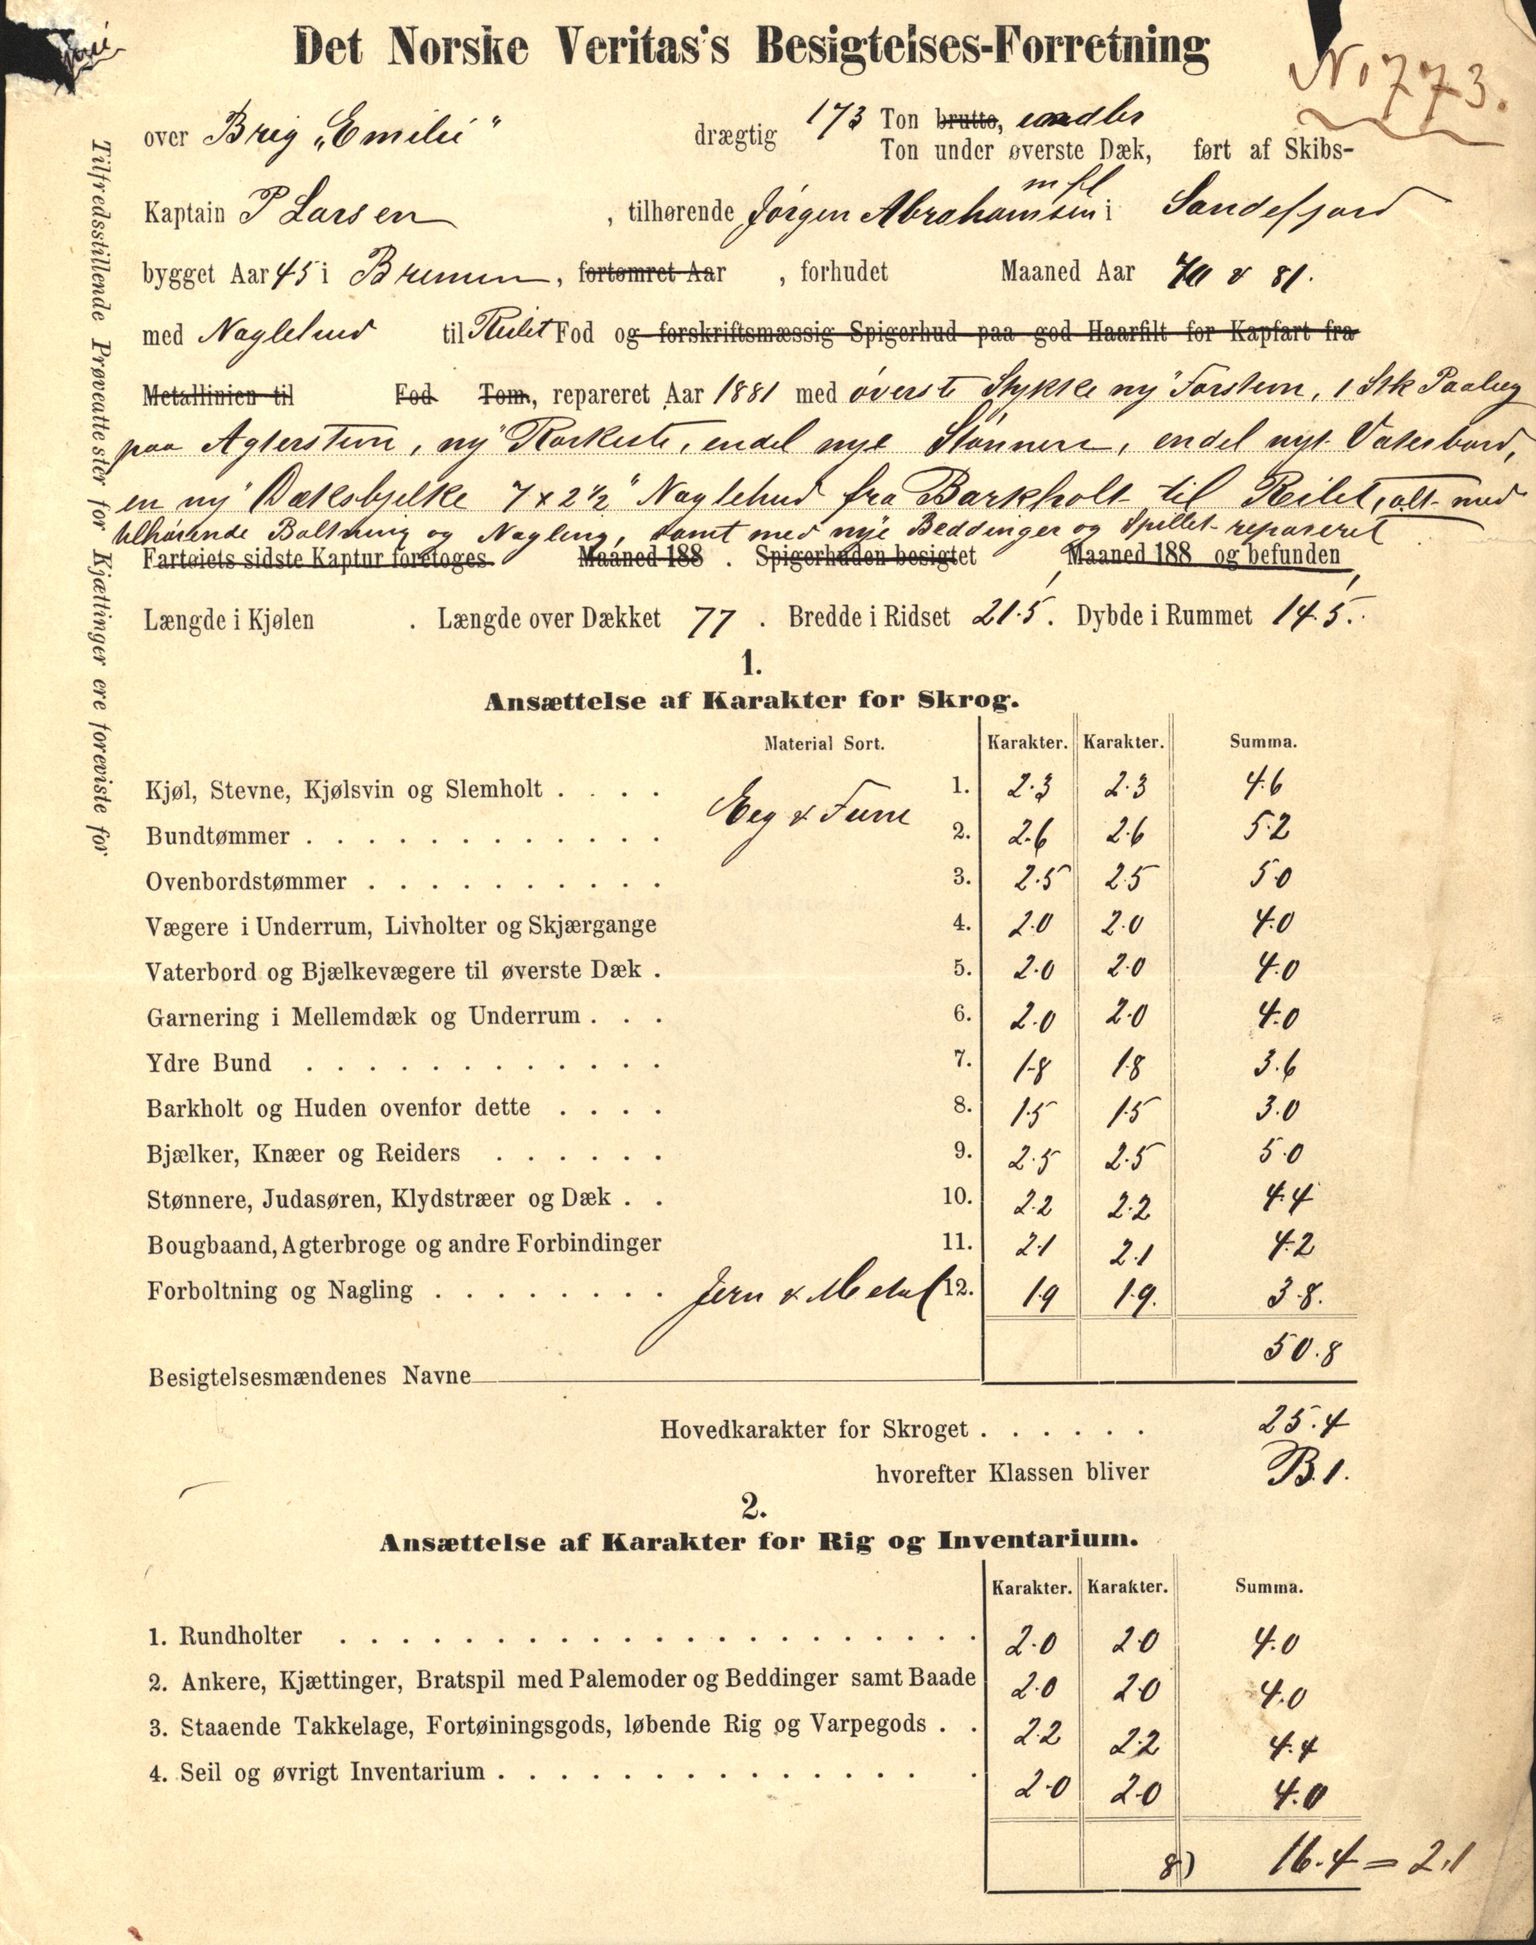 Det Norske Veritas's Besigtelses-Forretning
No 773.
over Brig „Emilie“ drægtig 173 Ton brutto,
Ton under øverste Dæk, ført af Skibs-
Kaptain P Larsen, tilhørende Jørgen Abrahamsen mfl i Sandefjord
bygget Aar 45 i Bremen, fortømret Aar , forhudet Maaned Aar 70 & 81.
med Naglehud til Rilet Fod og forskriftsmæssig Spigerhud paa god Haarfilt for Kapfart fra
Metallinien til Fod Tom, repareret Aar 1881 med överste Stykke ny Forstevn, 1 Stk Paaleg
paa Agterstevn, ny Rorkiste, endel nye Stönnere, endel nyt Vaterbord,
en ny Dæksbjelke 7 x 2 ½" Naglehud fra Barkholt til Rilet, alt med
tilhörende Boltning og Nagling, samt med nye Beddinger og Spillet repareret
Fartøiets sidste Kaptur foretoges Maaned 188 . Spigerhuden besigtet Maaned 188 og befunden
Længde i Kjølen . Længde over Dækket 77 . Bredde i Ridset 21.5 . Dybde i Rummet 14.5.
1.
Ansættelse af Karakter for Skrog.
Material Sort. Karakter. Karakter. Summa.
Kjøl, Stevne, Kjølsvin og Slemholt . . . . Eeg & Furu 1. 2.3 2.3 4.6
Bundtømmer . . . . . . . . . . . . . 2. 2.6 2.6 5.2
Ovenbordstømmer . . . . . . . . . . 3. 2.5 2.5 5.0
Vægere i Underrum, Livholter og Skjærgange 4. 2.0 2.0 4.0
Vaterbord og Bjælkevægere til øverste Dæk . 5. 2.0 2.0 4.0
Garnering i Mellemdæk og Underrum . . . 6. 2.0 2.0 4.0
Ydre Bund . . . . . . . . . . . . 7. 1.8 1.8 3.6
Barkholt og Huden ovenfor dette . . . . 8. 1.5 1.5 3.0
Bjælker, Knæer og Reiders . . . . . . 9. 2.5 2.5 5.0
Stønnere, Judasøren, Klydstræer og Dæk . . 10. 2.2 2.2 4.4
Bougbaand, Agterbroge og andre Forbindinger 11. 2.1 2.1 4.2
Forboltning og Nagling . . . . . . . . Jern & Metal 12. 1.9 1.9. 3.8.
50.8
Besigtelsesmændenes Navne
Hovedkarakter for Skroget . . . . . . 25.4
hvorefter Klassen bliver B.1.
2.
Ansættelse af Karakter for Rig og Inventarium.
Karakter. Karakter. Summa.
1. Rundholter . . . . . . . . . . . . . . . . . . . . . 2.0 2.0 4.0
2. Ankere, Kjættinger, Bratspil med Palemoder og Beddinger samt Baade 2.0 2.0 4.0
3. Staaende Takkelage, Fortøiningsgods, løbende Rig og Varpegods . . 2.2 2.2 4.4
4. Seil og øvrigt Inventarium . . . . . . . . . . . . . . . 2.0 2.0 4.0
8) 16.4 = 2.1
Tilfredsstillende Prøveattester for Kjættinger ere foreviste for